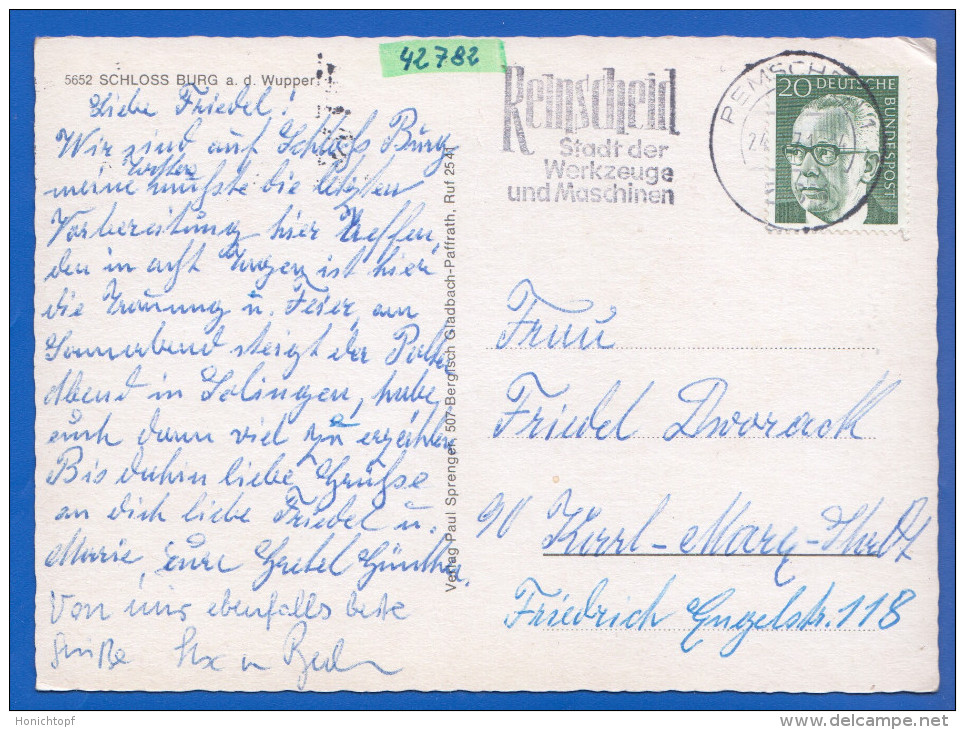 42782
5652 SCHLOSS BURG a. d. Wupper
Liebe Friedel!
Wir sind auf Schloß Burg
meine mußte die letzten
Vorbereitung hier treffen,
den in acht Tagen ist hier
die Trauung u. Feier, am
Sonnabend steigt der Polter
Abend in Solingen, habe
euch dann viel zu erzählen
Bis dahin liebe Grüße
an dich liebe Friedel u.
Marie, Eure Gretel Günther
Von uns ebenfalls beste
Grüße
Verlag Paul Sprenger, 507-Bergisch Gladbach-Paffrath, Ruf 2541
Remscheid
Stadt der
Werkzeuge
und Maschinen
REMSCHEID
20 DEUTSCHE BUNDESPOST
Frau
Friedel Dworack
90 Karl-Marx-Stadt
Friedrich Engelstr. 118
Honichtopf
www.delcampe.net